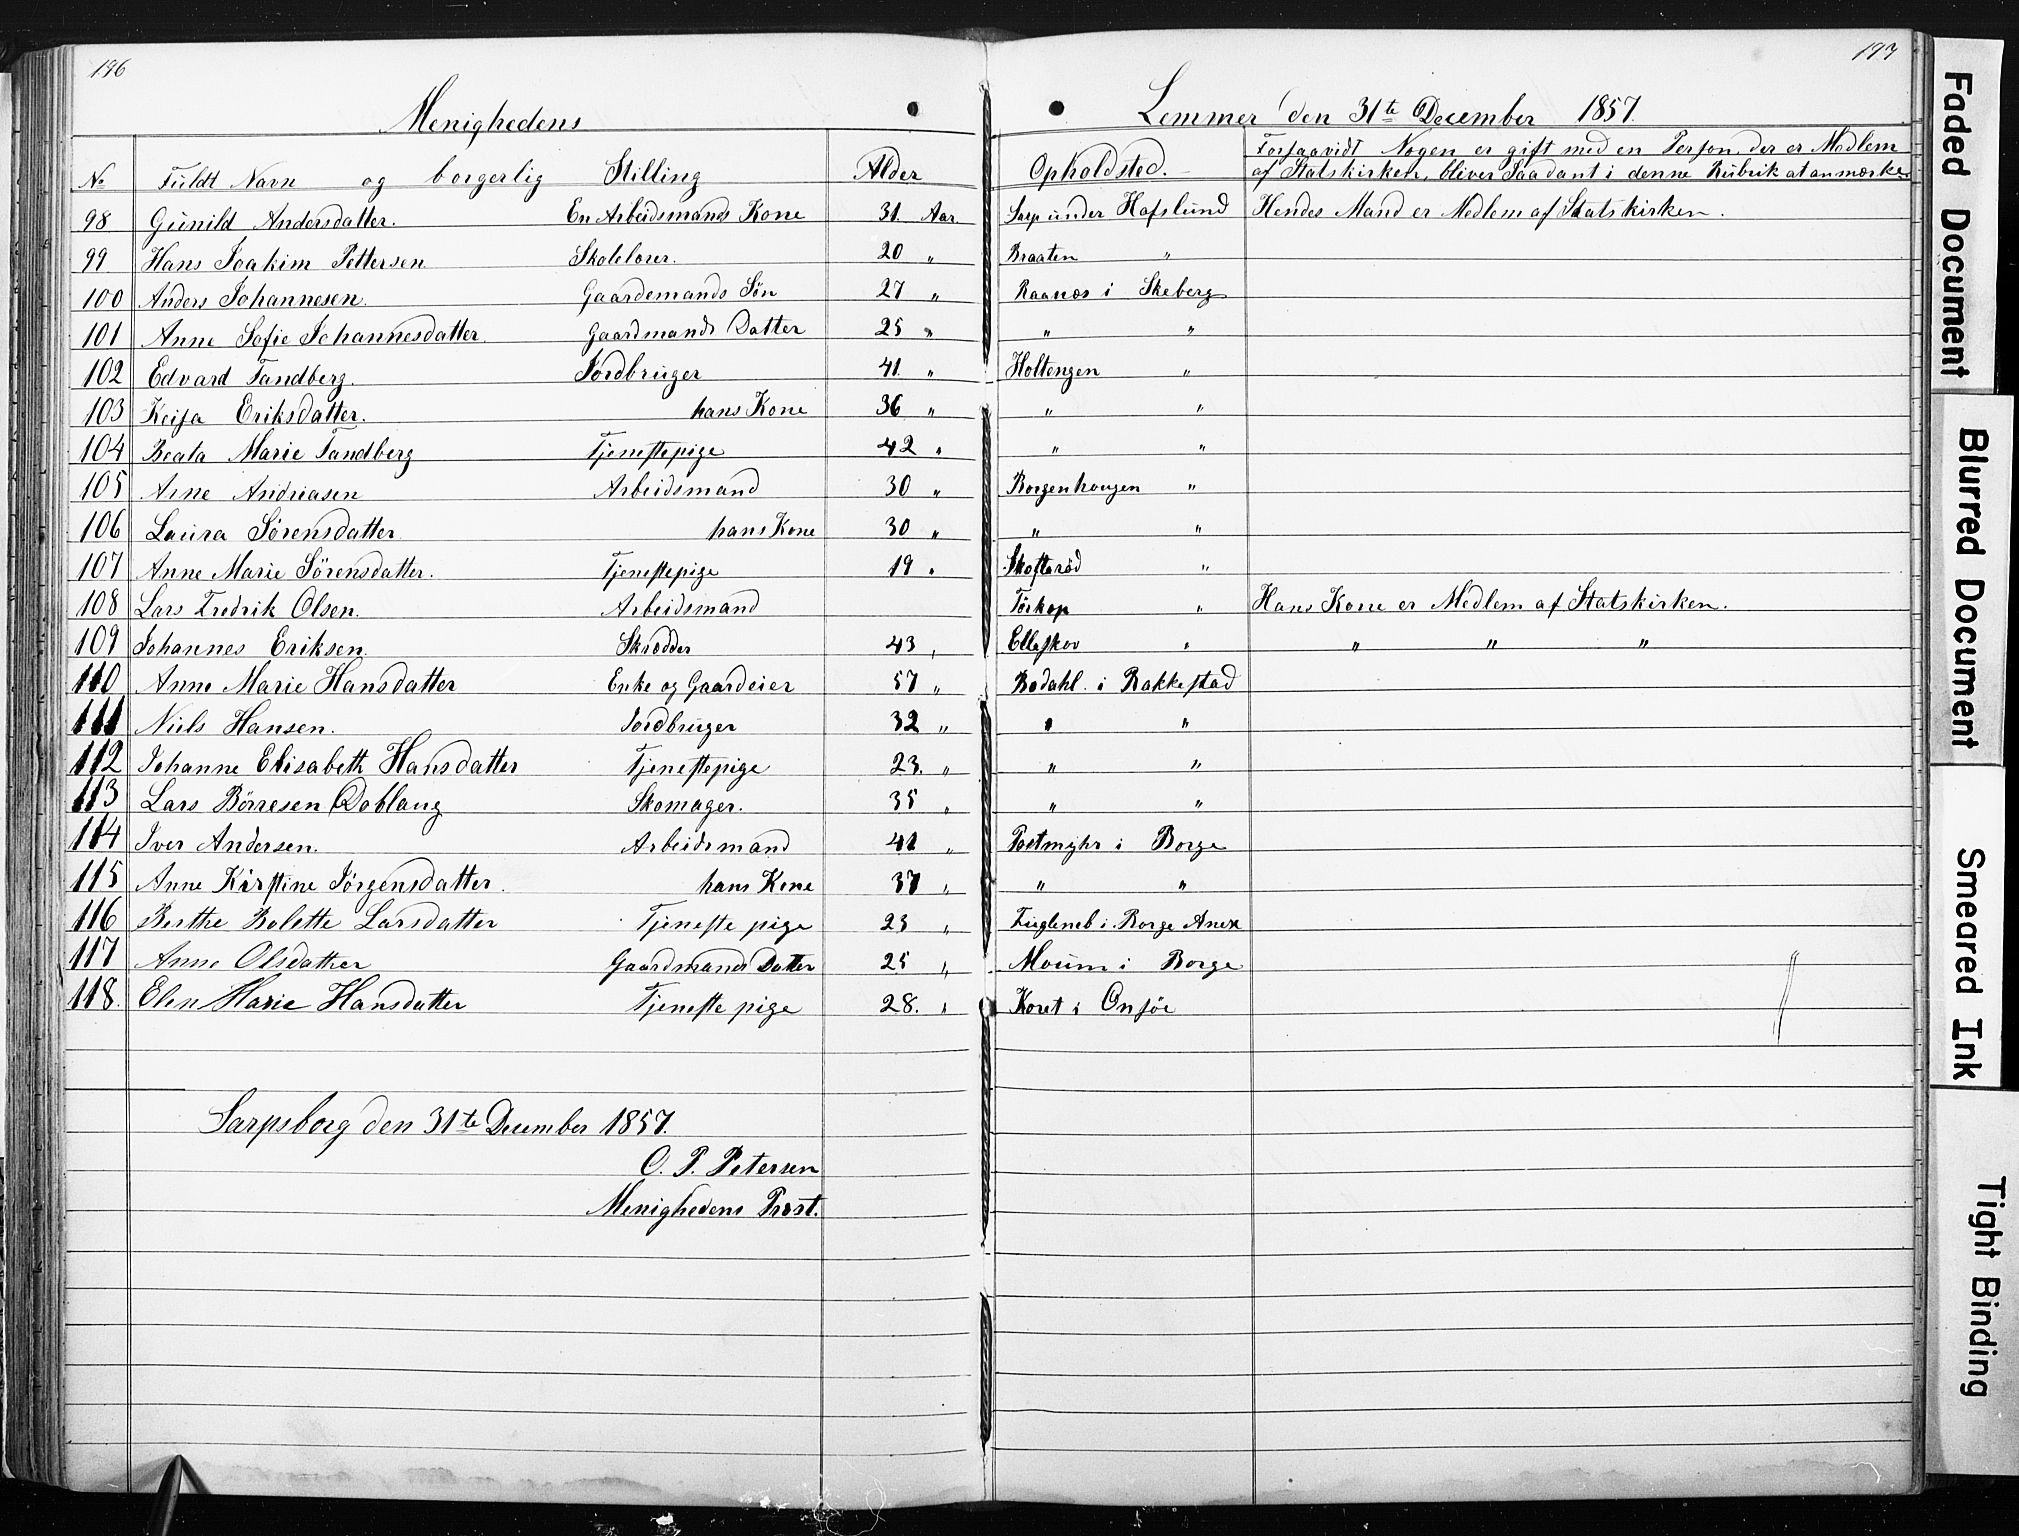 196
197
Menighedens Lemmer den 31te December 1857.
No Fuldt Navn og borgerlig Stilling Alder Opholdsted. Forsaavidt Nogen er gift med en Person, der er Medlem
af Statskirken, bliver Saadant i denne Rubrik at anmærke
98 Gunild Andersdatter. En Arbeidsmands Kone 31. Aar. Sarp under Hafslund Hendes Mand er Medlem af Statskirken.
99 Hans Joakim Pettersen Skolelærer. 20 „ Braaten „
100 Anders Johannesen. Gaardemands Søn 27 „ Raanæs i Skeberg
101 Anne Sofie Johannesdatter Gaardmands Datter 25 „ „ „
102 Edvard Tandberg. Jordbruger 41. „ Holtengen „
103 Keisa Eriksdatter. hans Kone 36 „ „ „
104 Beata Marie Tandberg Tjenestepige 42 „ „ „
105 Arne Andreasen Arbeidsmand 30 „ Borgenhaugen „
106 Laura Sørensdatter hans Kone 30 „ „ „
107 Anne Marie Sørensdatter. Tjenestepige 19 „ Skofterød „
108 Lars Fredrik Olsen. Arbeidsmand Torkop „ Hans Kone er Medlem af Statskirken.
109 Johannes Eriksen. Skrædder 43 „ Elleskov „ „ „ „
110 Anne Marie Hansdatter Enke og Gaardeier 57 „ Bodahl i Rakkestad
111 Niels Hansen. Jordbruger 32 „ „ „
112 Johanne Elisabeth Hansdatter Tjenestepige 23. „ „ „
113 Lars Börresen Doblaug Skomager. 35 „ „ „
114 Iver Andersen. Arbeidsmand 41 „ Postmyhr i Borge
115 Anne Kirstine Jörgensdatter. hans Kone 37 „ „ „
116 Berthe Bolette Larsdatter Tjeneste pige 23 „ Fugleneb i Borge Anex
117 Anne Olsdatter Gaardmands Datter 25 „ Moum i Borge
118. Elen Marie Hansdatter Tjeneste pige 28. „ Koret i Onsöe
Sarpsborg den 31te December 1857.
O. P. Petersen
Menighedens Præst.
Faded Document
Blurred Document
Smeared Ink
Tight Binding